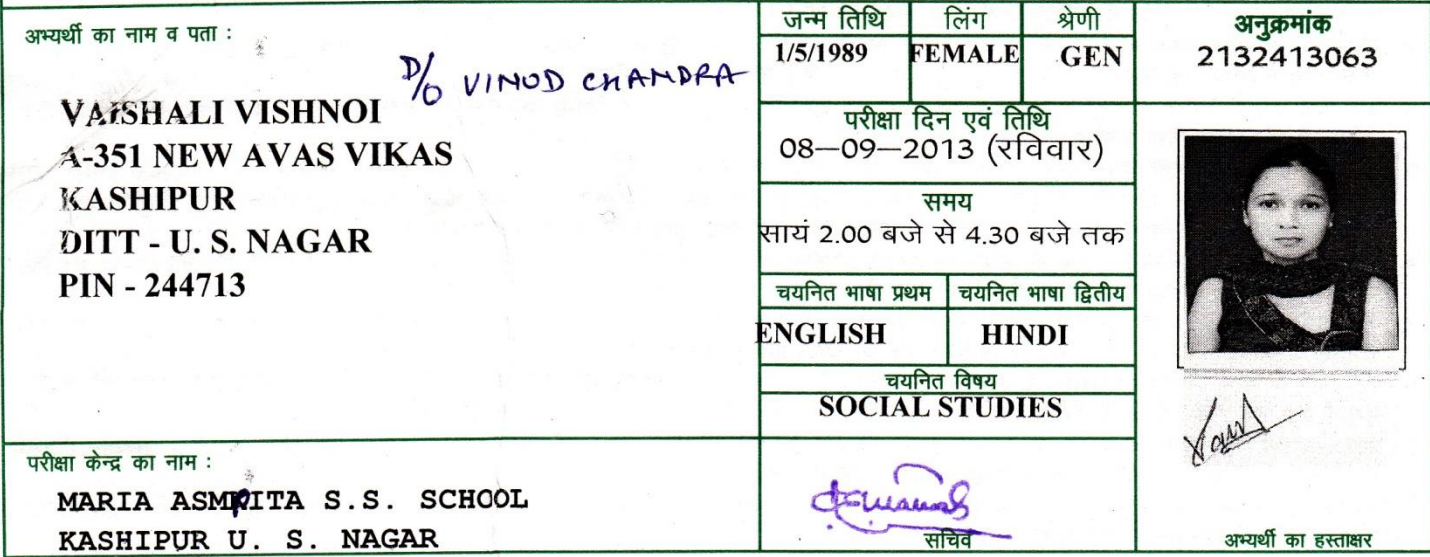 अभ्यर्थी का नाम व पता :
D/o VINOD CHANDRA
VAISHALI VISHNOI
A-351 NEW AVAS VIKAS
KASHIPUR
DITT - U. S. NAGAR
PIN - 244713
जन्म तिथि लिंग श्रेणी
1/5/1989 FEMALE GEN
परीक्षा दिन एवं तिथि
08–09–2013 (रविवार)
समय
सायं 2.00 बजे से 4.30 बजे तक
चयनित भाषा प्रथम चयनित भाषा द्वितीय
ENGLISH HINDI
चयनित विषय
SOCIAL STUDIES
अनुक्रमांक
2132413063
परीक्षा केन्द्र का नाम :
MARIA ASMRITA S.S. SCHOOL
KASHIPUR U. S. NAGAR
सचिव
अभ्यर्थी का हस्ताक्षर